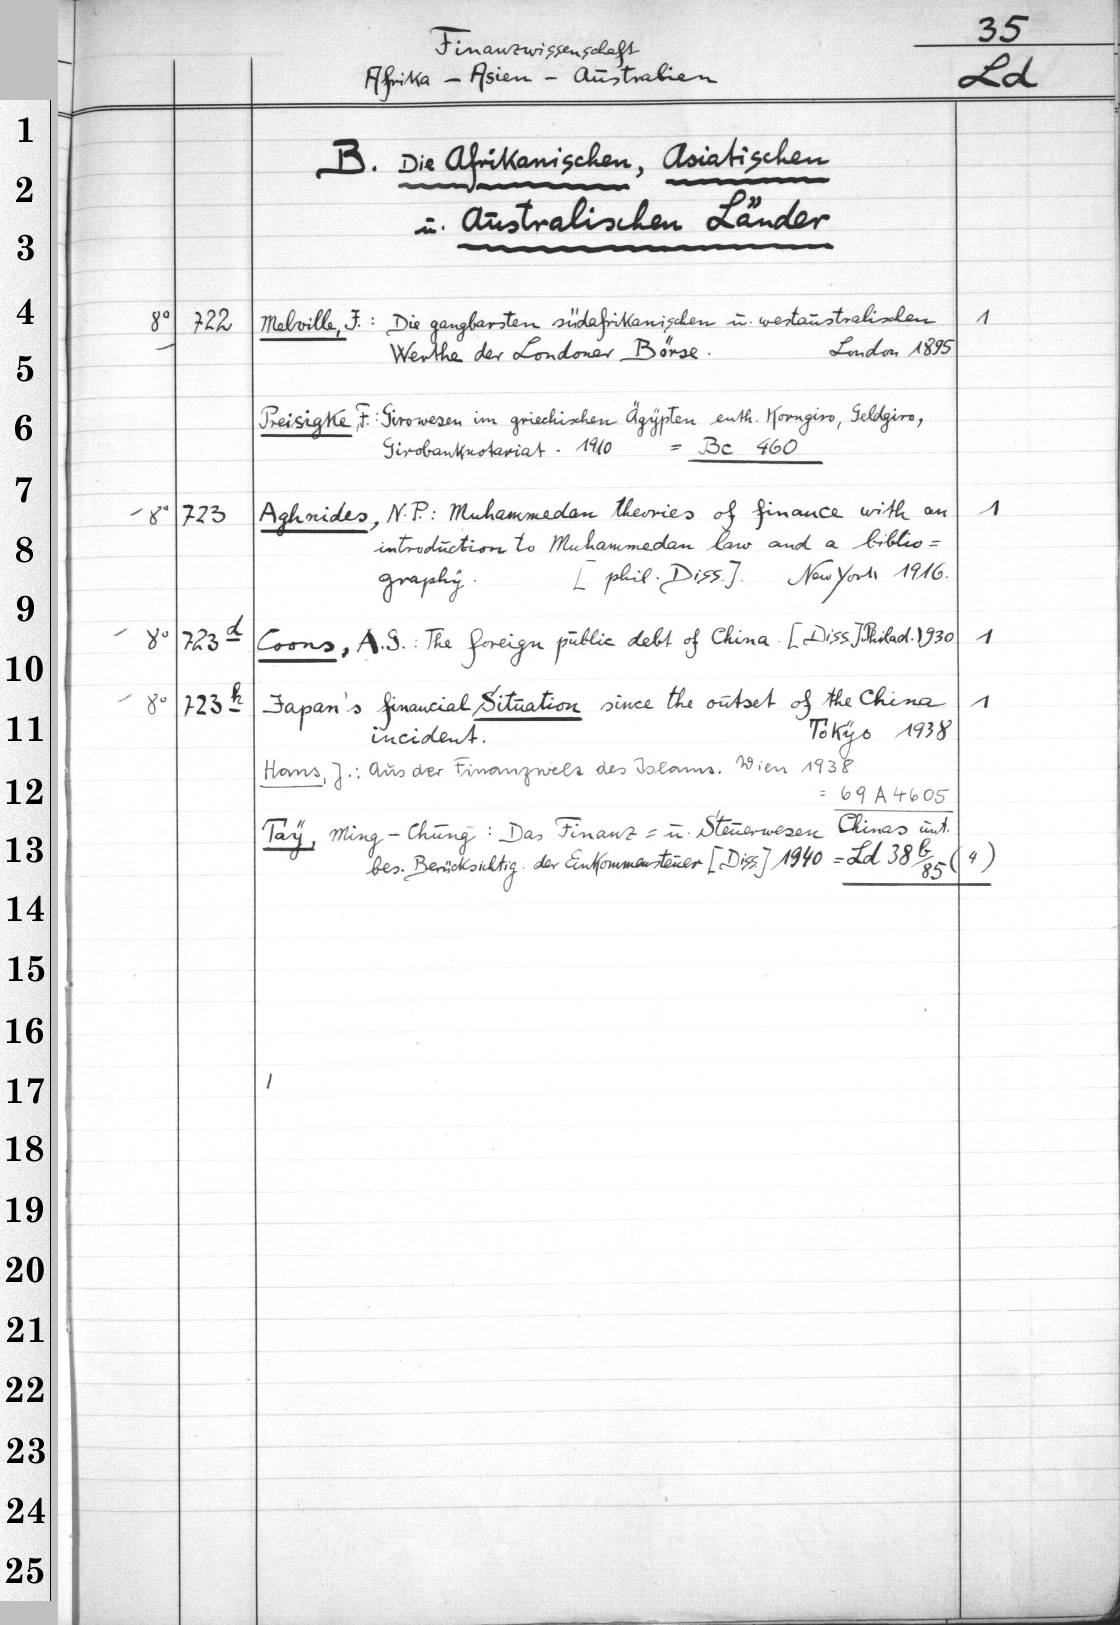 35
Finanzwissenschaft
Afrika - Asien - Australien
Ld
B. Die Afrikanischen, Asiatischen
u. Australischen Länder
8° 722 Melville, F.: Die gangbarsten südafrikanischen u. westaustralischen 1
Werthe der Londoner Börse. London 1895
Preisigke, F.: Girowesen im griechischen Ägypten enth. Korngiro, Geldgiro,
Girobanknotariat. 1910 = Bc 460
8° 723 Aghnides, N.P.: Muhammedan theories of finance with an 1
introduction to Muhammedan law and a biblio=
graphy. [phil. Diss.]. New York 1916.
8° 723 d Coons, A.G.: The foreign public debt of China. [Diss.] Philad. 1930 1
8° 723 h Japan's financial Situation since the outset of the China 1
incident. Tokyo 1938
Hans, J.: Aus der Finanzwelt des Islams. Wien 1938
= 69 A 4605
Tay, Ming-Chung: Das Finanz= u. Steuerwesen Chinas unt.
bes. Berücksichtig. der Einkommensteuer [Diss.] 1940 = Ld 38 b/85 (4)
1
2
3
4
5
6
7
8
9
10
11
12
13
14
15
16
17
18
19
20
21
22
23
24
25